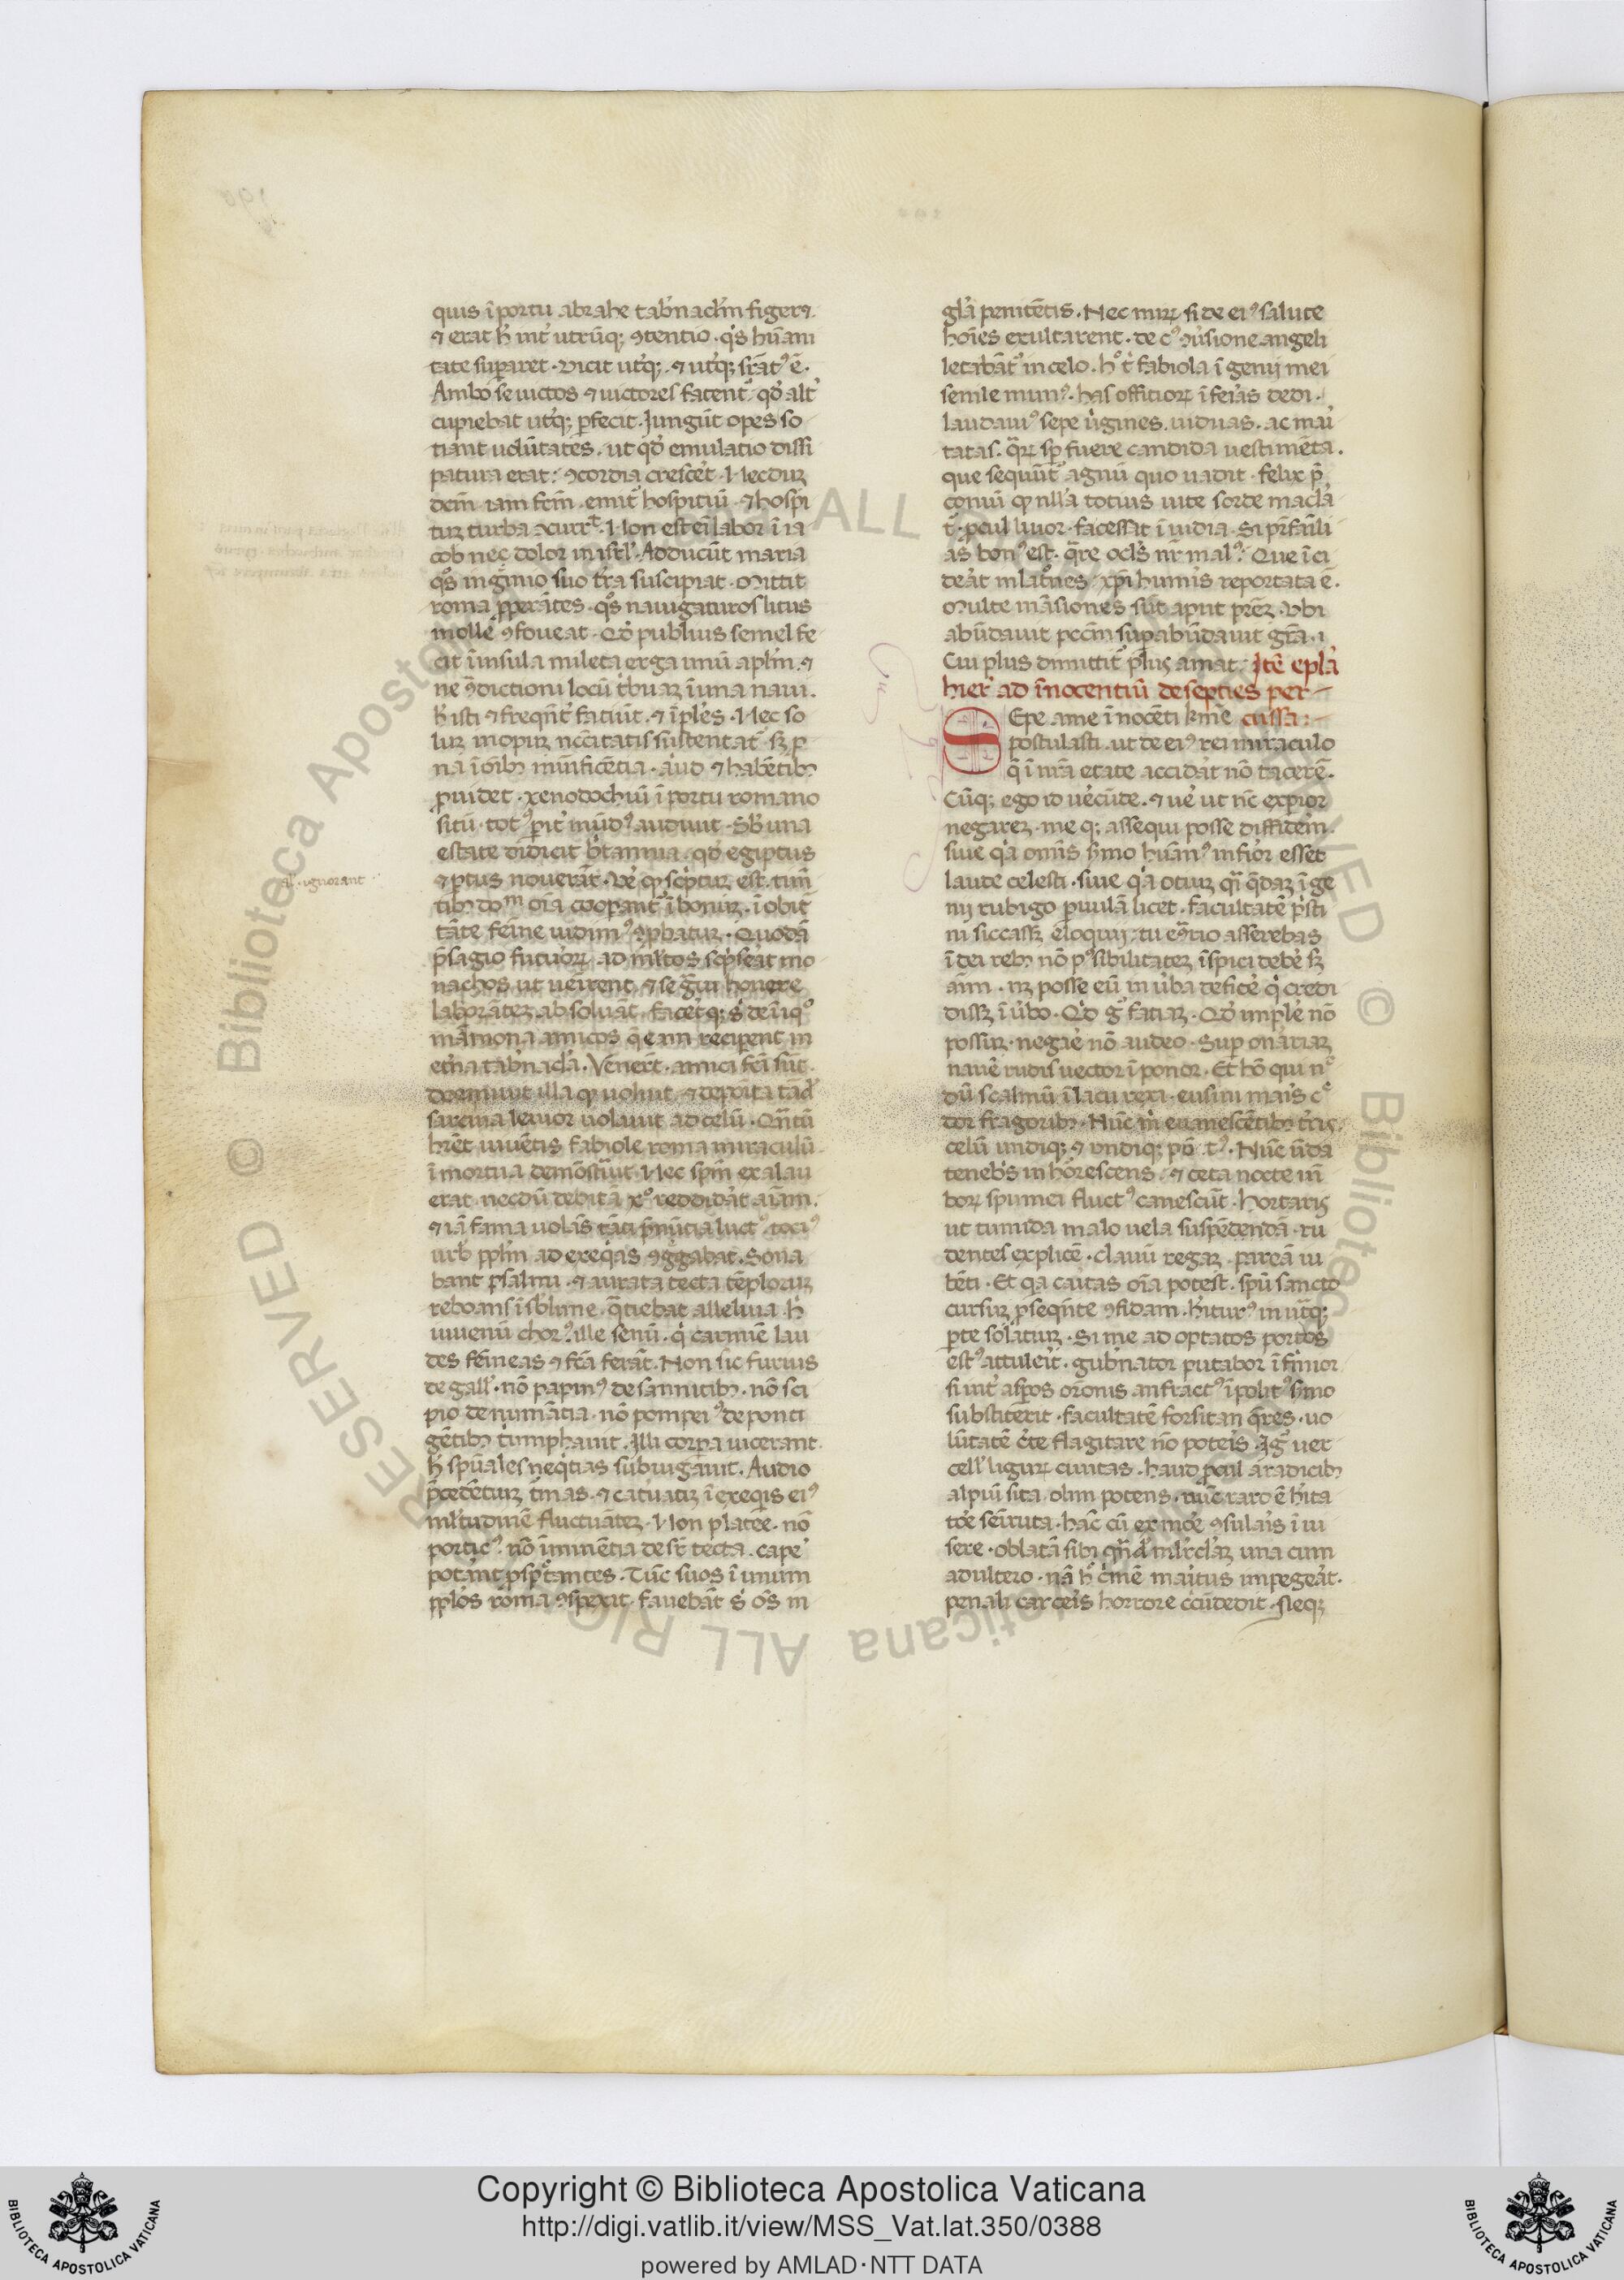 quis ī portu abrahe tab'nacl'm figeret
⁊ erat h' int' utrūq; ↄtentio. q's hūani
tate sup̄aret. Vicit ut'q;. ⁊ ut'q; s̄rat' ē.
Ambo se uictos ⁊ uictores fatent'. qd' alt'
cupiebat ut'q; p̄fecit. Jungūt opes so
tiant uolūtates. ut qd' emulatio dissi
patura erat. ↄcordia cresc'et. Necdum
dem̄ iam fcm̄. emit' hospitiū. ⁊ hospi
tum turba ↄcurrit. Non est eī labor ī ia
cob nec dolor in isrl'. Adducūt maria
q's in gmio suo t'ra suscipiat. Mittit
roma p̄perātes. q's nauigaturos litus
molle ↄfoueat. Qd' publius semel fe
cit ī insula mileta erga unū apl'm. ⁊
ne ↄdictioni locū t'buam ī una naui.
h' isti ⁊ freqn̄t' fatiūt. ⁊ ī pl'es. Nec so
lum inopum nccītatis sustentat'. sz p
na ī oīb; munificētia. aud ⁊ habētib;
p̄uidet. xenodochiū ī portu romano
sitū. tot' pit' mūd' audiuit. Sb' una
estate didicit b'tannia. qd' egiptus
⁊ p̄tus nouerāt. Ve' q scptum est. timē
tib; dom oīa coop̄ant' ī bonum. ī obit'
al'. ignorant
tāte femine uidim' ↄprbatum. Quodā
p̄sagio futuorum. ad ml'tos scps'eat mo
nachos ut ueīrent. ⁊ se g'ui honere
laborātem absoluāt. facet q; s' de īiq°
māmona amicos q' eam recipēent in
et'na tab'nacla. Venērt. amici fci sūt.
dormiuit illa q uoluit. ⁊ depoita tād'
sarcina leuior uolauit ad celū. Qn̄tū
hrēt uiuētis fabiole roma miraculū.
ī mortua demōstiuit. Nec spm̄ exalau
erat. necdū debitā x° reddid'at aīam.
⁊ iā fama uolās tāti p̄nūtia luct' toci'
urb' ppl'm ad exeqias ↄgg'abat. Sona
bant psalmi. ⁊ aurata tecta tēplorum
reboans ī sblime. q'tiebat alleluia. h'
iuuenū chor'. ille senū. q' carmīe lau
des femineas ⁊ fca ferāt. Non sic furius
de gall'. nō papiri' de samnitib;. nō sci
pio de numātia. nō pompei' de ponti
gētib; t'umphauit. Illi corpa uicerant.
h' spūales neq'tias subiugauit. Audio
p̄cedētium t'mas. ⁊ catuatim ī exeqis ei'
ml'tudinē fluctuātem. Non platee. nō
portic'. nō īminētia desr̄ tecta. cape'
pot'ant p̄spc̄tantes. Tūc suos ī unum
ppl'os roma ↄspexit. fauebāt s' os̄ in
gl'a penitētis. Nec mirum si de ei' salute
hoīes exultarent. de c' ↄu'sione angeli
letabāt' in celo. h° t' fabiola ī genij mei
senile mun'. has offitiorum īferias dedi.
laudaui' sepe u'gines. uiduas. ac mai
tatas. q'rum sp̄ fuere candida uestimēta.
que sequūt' agnū quo uadit. felix p̄
coniū q nll'a totius uite sorde macl'a
t'. p̄cul liuor. facessat ī uidia. Si p̄r famīli
as bon' est. q're ocl's nr̄ mal'. Que īci
deat in latōnes. xp̄i humi's reportata ē.
Multe māsiones sūt aput prēm. Vbi
abūdauit pccm̄ sup̄abūdauit grā. ⁊
Cui plus dimittit' plus amat. Itē epl'a
hier' ad īnocentiū de septies per
Sepe a me īnocēti kmē cussa:
postulasti. ut de ei' rei miraculo
q̄ ī nra etate accid'at nō tacerē.
Cūq; ego id uecūde. ⁊ ue' ut nc̄ expior
negarem. me q; assequi posse diffidem.
siue q'a omīs s'mo hūan' inf'ior esset
laude celesti. siue q'a otium q'i q'dam ī ge
nij rubigo paruulā licet. facultatē p'sti
ni siccasset eloquij. tu ec̄trio asserebas
ī dei reb; nō p'sibilitatem īspici debe' sz
aīm. nz posse eū in u'ba defice' q' credi
disset ī u'bo. Qd g' fatiam. Qd' imple' nō
possum. negare nō audeo. Sup onariam
nauē rudis uector ī ponor. Et hō qui n°
dū scalmū ī lacu rexi. eusini maris c°
dor fragorib;. Nūc m' euanescētib; t'ris.
celū undiq; ⁊ undiq; pō t'. Nūc ūda
tenebis in horrescens. ⁊ ceta nocte nī
borum spumei fluct' canescūt. Hortaris
ut tumida malo uela suspēdendā. ru
dentes explicē. clauū regam. pareā iu
bēti. Et q'a caritas oīa potest. spū sancto
cursum p'seqn̄te ↄfidam. h'itur' in ut'q;
p̄te solatium. Si me ad optatos portos
est' attuleit'. gub'nator putabor ī firmior
si int' asp̄os or̄onis anfract' ī polit' s'mo
substiterit. facultatē forsitan q'res. uo
lūtatē c'te flagitare nō poteis. Ig' uer
cell' ligurum ciuitas. haud p̄cul a radicib;
alpiū sita. olim potens. nūc raro ē h'ita
tōe semiruta. hāc cū ex moē ↄsularis ī ui
sere. oblatā sibi qn̄d' ml'rc'lam una cum
adultero. nā h° c'mē maitus impegeat.
penali carceis horrore cc̄udedit. Neq;